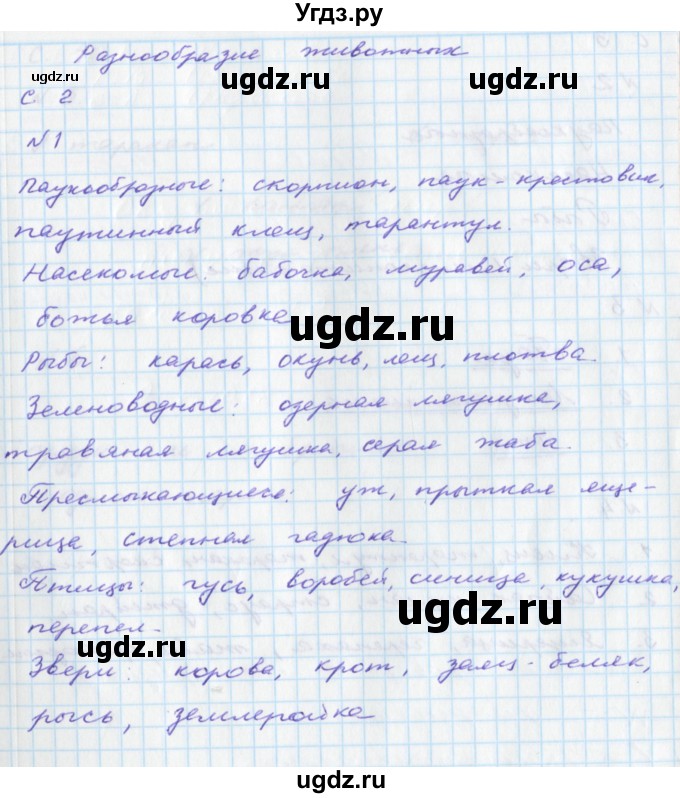 Угдз.ру
Разнообразие животных
ugdz.ru ugdz.ru ugdz.ru
с. 2
N 1
Паукообразные: скорпион, паук-крестовик,
паутинный клещ, тарантул.
ugdz.ru
Насекомые: бабочка, муравей, оса,
божья коровка
ugdz.ru
Рыбы: карась, окунь, лещ, плотва.
Зеленоводные: озерная лягушка,
травяная лягушка, серая жаба.
ugdz.ru
Пресмыкающиеся: уж, прыткая яще-
рица, степная гадюка.
Птицы: гусь, воробей, синица, кукушка,
ugdz.ru
перепел.
ugdz.ru ugdz.ru
Звери: корова, крот, заяц-беляк,
рысь, землеройка
ugdz.ru
ugdz.ru